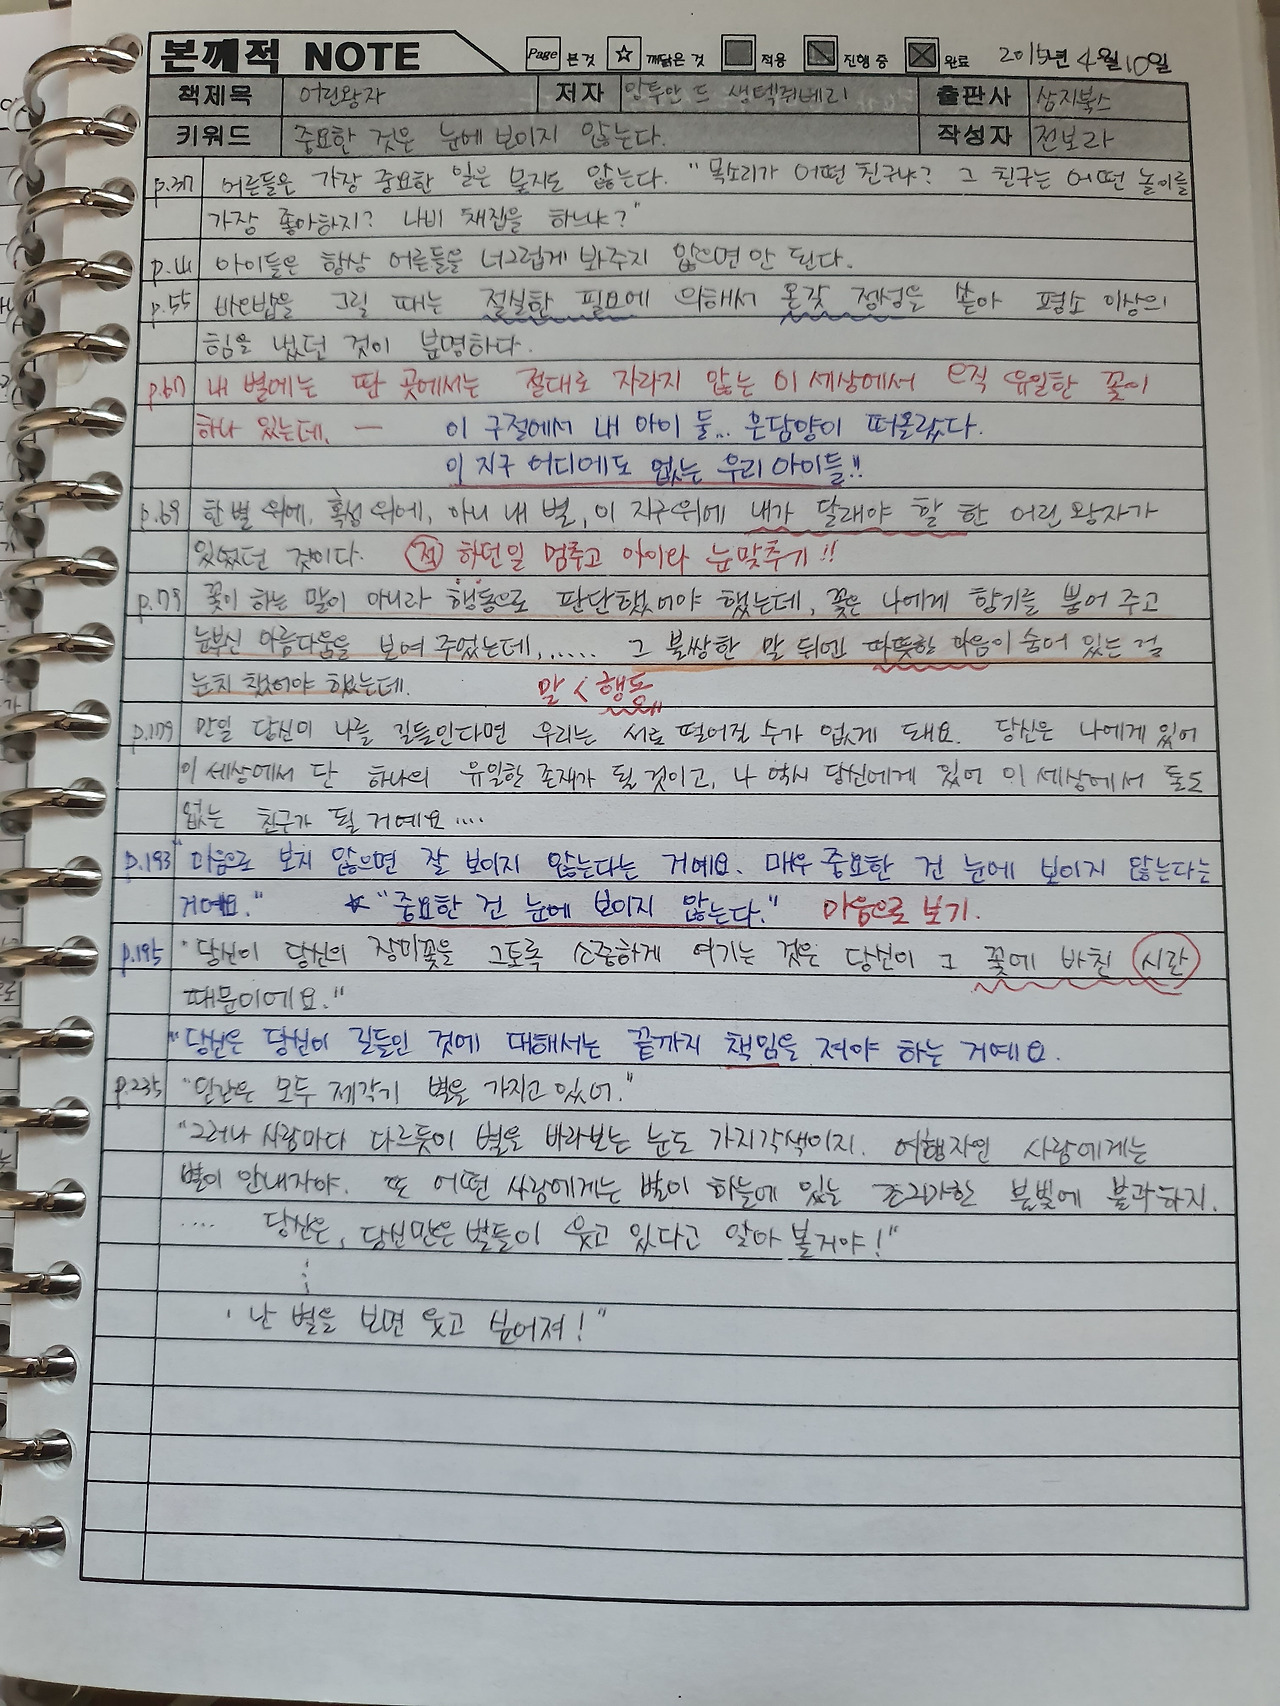 본깨적 NOTE Page 본 것 ☆ 깨달은 것 적용 진행 중 완료 2015년 4월 10일
책제목 어린왕자 저자 앙투안 드 생텍쥐베리 출판사 삼지북스
키워드 중요한 것은 눈에 보이지 않는다. 작성자 전보라
p.37 어른들은 가장 중요한 일은 묻지도 않는다. "목소리가 어떤 친구냐? 그 친구는 어떤 놀이를
가장 좋아하지? 나비 채집을 하느냐?"
p.41 아이들은 항상 어른들을 너그럽게 봐주지 않으면 안 된다.
p.55 바오밥을 그릴 때는 절실한 필요에 의해서 온갖 정성을 쏟아 평소 이상의
힘을 냈던 것이 분명하다.
p.67 내 별에는 딴 곳에서는 절대로 자라지 않는 이 세상에서 오직 유일한 꽃이
하나 있는데, — 이 구절에서 내 아이 둘... 은담양이 떠올랐다.
이 지구 어디에도 없는 우리 아이들!!
p.69 한 별 위에, 혹성 위에, 아니 내 별, 이 지구 위에 내가 달래야 할 한 어린 왕자가
있었던 것이다. 적 하던일 멈추고 아이랑 눈맞추기!!
p.79 꽃이 하는 말이 아니라 행동으로 판단했어야 했는데, 꽃은 나에게 향기를 뿜어 주고
눈부신 아름다움을 보여 주었는데,...... 그 불쌍한 말 뒤엔 따뜻한 마음이 숨어 있는 걸
눈치 챘어야 했는데. 말 < 행동
p.179 만일 당신이 나를 길들인다면 우리는 서로 떨어질 수가 없게 돼요. 당신은 나에게 있어
이 세상에서 단 하나의 유일한 존재가 될 것이고, 나 역시 당신에게 있어 이 세상에서 둘도
없는 친구가 될 거예요....
p.193 "마음으로 보지 않으면 잘 보이지 않는다는 거예요. 매우 중요한 건 눈에 보이지 않는다는
거예요." ☆ "중요한 건 눈에 보이지 않는다." 마음으로 보기.
p.195 "당신이 당신의 장미꽃을 그토록 소중하게 여기는 것은 당신이 그 꽃에 바친 시간
때문이에요."
"당신은 당신이 길들인 것에 대해서는 끝까지 책임을 져야 하는 거예요.
p.235 "인간은 모두 제각기 별을 가지고 있어."
"그러나 사람마다 다르듯이 별을 바라보는 눈도 가지각색이지. 여행자인 사람에게는
별이 안내자야. 또 어떤 사람에게는 별이 하늘에 있는 조그마한 불빛에 불과하지.
.... 당신은, 당신만은 별들이 웃고 있다고 알아 볼거야!"
⋮
"난 별을 보면 웃고 싶어져!"